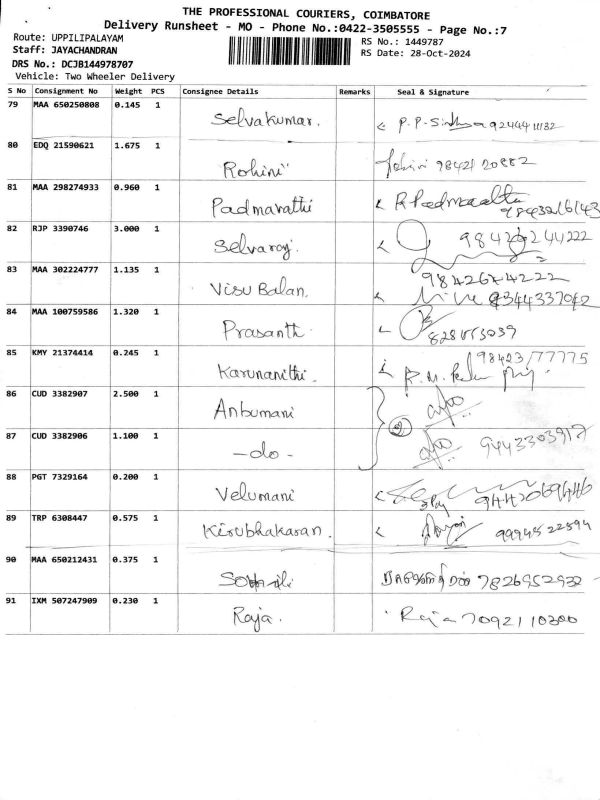 THE PROFESSIONAL COURIERS, COIMBATORE
Delivery Runsheet - MO - Phone No.:0422-3505555 - Page No.:7
Route: UPPILIPALAYAM RS No.: 1449787
Staff: JAYACHANDRAN RS Date: 28-Oct-2024
DRS No.: DCJB144978707
Vehicle: Two Wheeler Delivery
S No Consignment No Weight PCS Consignee Details Remarks Seal & Signature
79 MAA 650250808 0.145 1
Selvakumar.
80 EDQ 21590621 1.675 1
Rohini 98421 20882
81 MAA 298274933 0.960 1
Padmavathi
82 RJP 3390746 3.000 1
Selvaraj
83 MAA 302224777 1.135 1
Visu Balan.
84 MAA 100759586 1.320 1
Prasanth
85 KMY 21374414 0.245 1 98423/77775
Karunanithi
86 CUD 3382907 2.500 1
Anbumani
87 CUD 3382906 1.100 1
-do- 9443303917
88 PGT 7329164 0.200 1
Velumani
89 TRP 6308447 0.575 1
Kirubhakaran. 9994522594
90 MAA 650212431 0.375 1
7826952932
91 IXM 507247909 0.230 1
Raja. Raja 7092110300